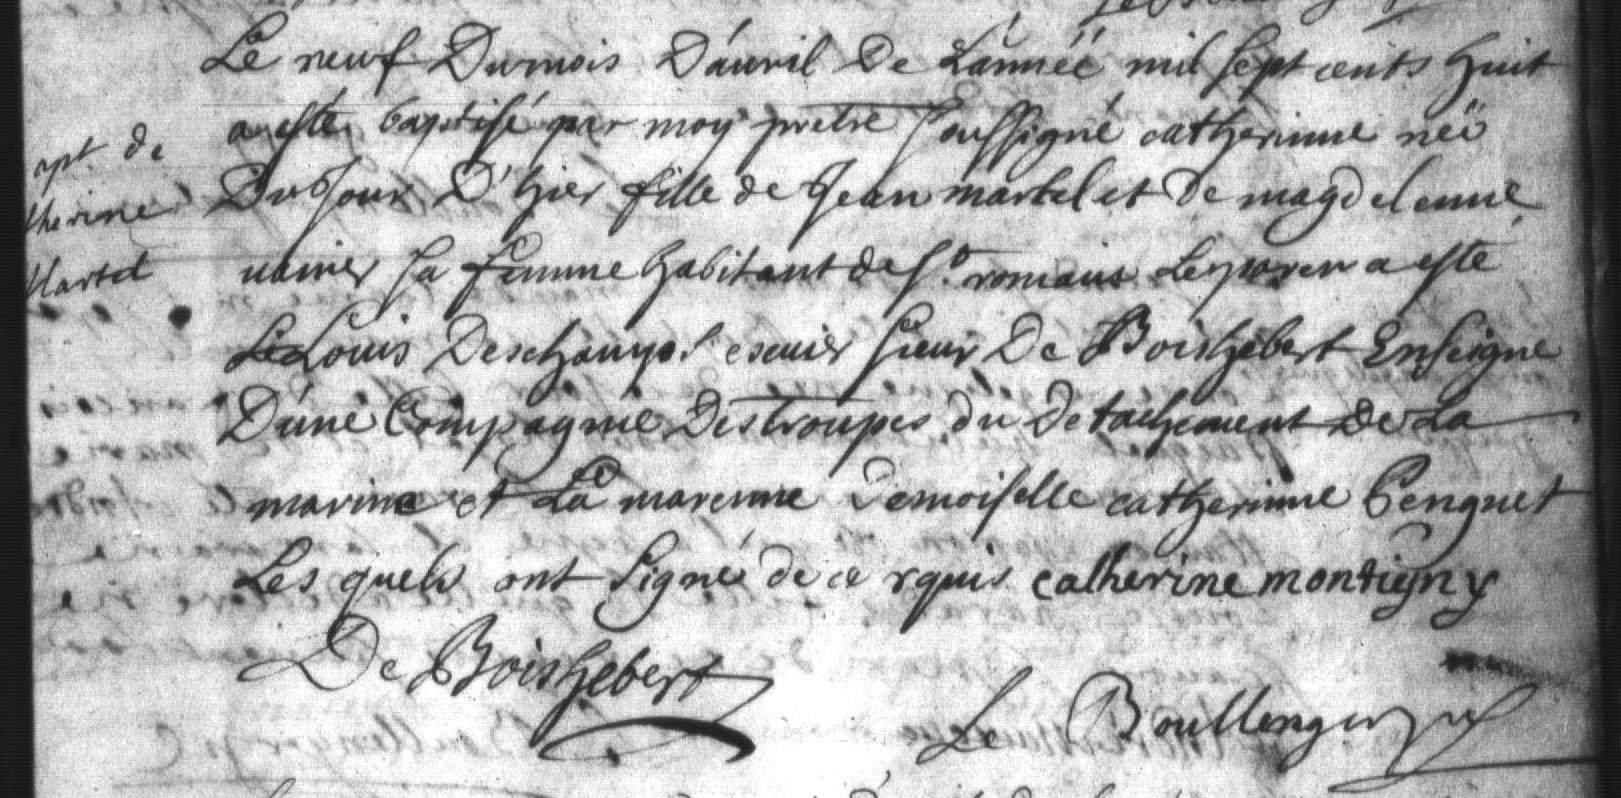 Le neuf Dumois D'auril De L'année mil sept cents huit
a este baptisé par moy pretre soussigné catherinne neë
Du Jour D'hier fille de Jean martel et De magdelenne
uanier sa femme habitant de St. romain Le parein a este
Louis Deschamps escuier sieur De Boishebert Enseigne
D'une Compagnie Destroupes du Detachement De La
marine et La marenne Demoiselle catherinne Penguet
Les quels ont signé de ce rquis catherine montigny
De Boishebert
Le Boullenger
apt. de
therine
Martel